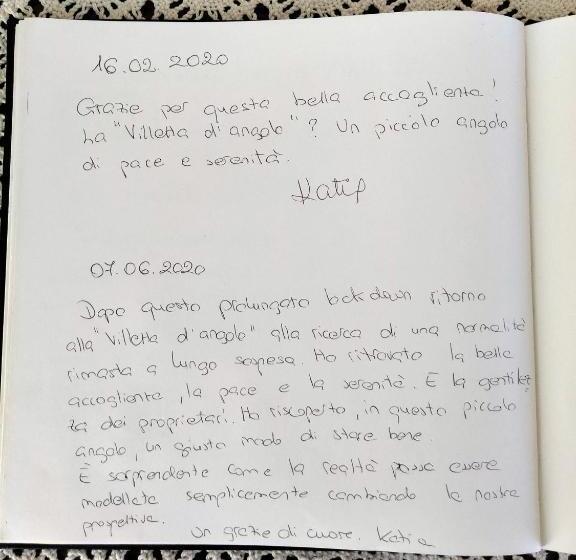 16.02.2020
Grazie per questa bella accoglienta!
La "Villetta d'angolo"? Un piccolo angolo
di pace e serenità.
Katia
07.06.2020
Dopo questo prolungato lockdown ritorno
alla "Villetta d'angolo" alla ricerca di una normalità
rimasta a lungo sospesa. Ho ritrovato la bella
accogliente, la pace e la serenità. E la gentilez
za dei proprietari. Ho riscoperto, in questo piccolo
angolo, un giusto modo di stare bene.
È sorprendente come la realtà possa essere
modellata semplicemente cambiando la nostra
prospettiva.
Un grazie di cuore. Katia